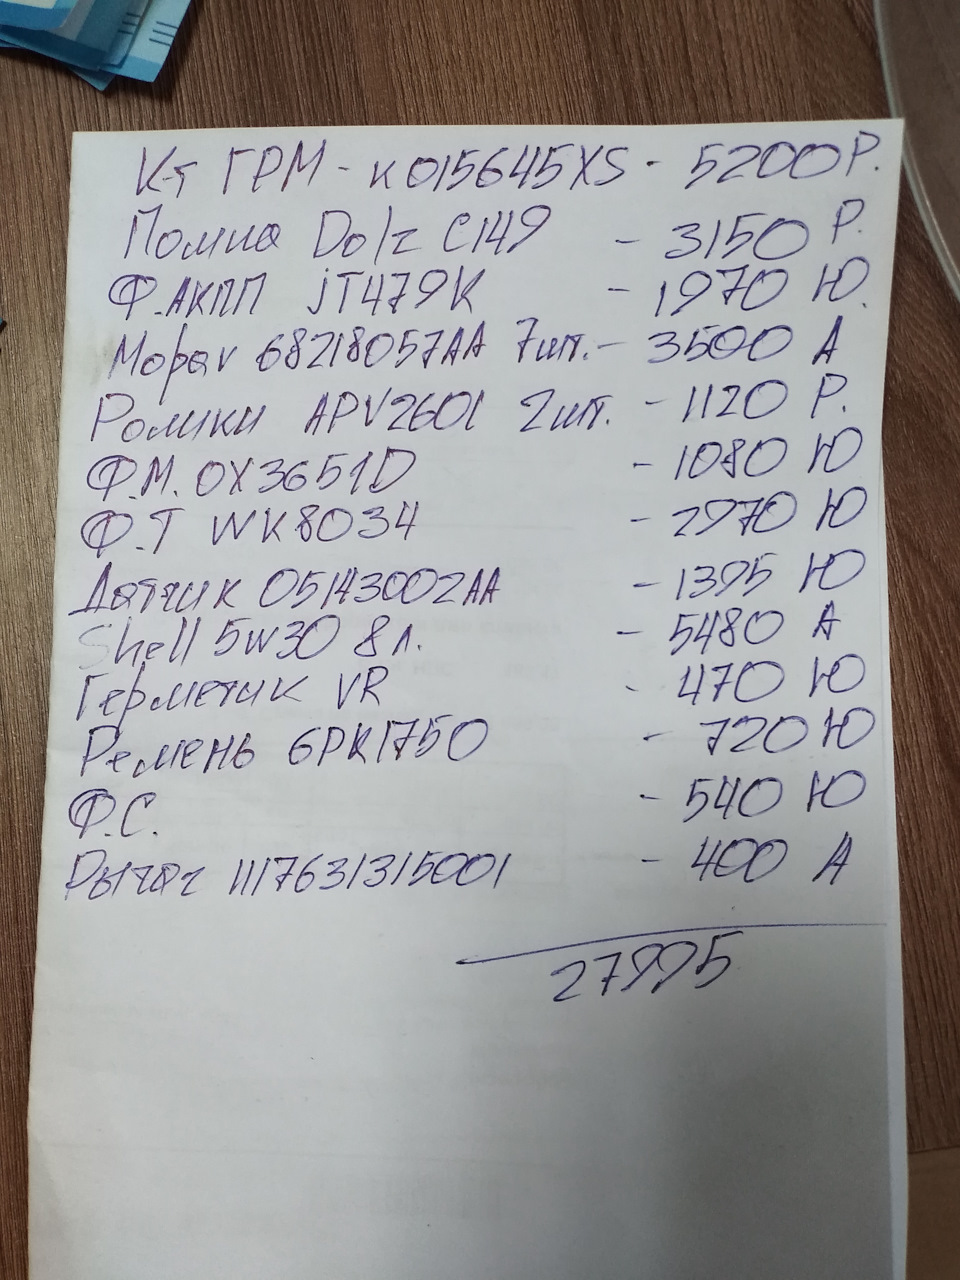 К-т ГРМ - К015645XS - 5200 Р.
Помпа Dolz C149 - 3150 Р.
Ф.АКПП JT479K - 1970 Ю.
Mopar 68218057AA 7шт. - 3500 А
Ролики APV2601 2шт. - 1120 Р.
Ф.М. OX3651D - 1080 Ю
Ф.Т WK8034 - 2970 Ю
Датчик 05143002AA - 1395 Ю
Shell 5W30 8л. - 5480 А
Герметик VR - 470 Ю
Ремень 6PK1750 - 720 Ю
Ф.С. - 540 Ю
Рычаг 1117631315001 - 400 А
27995